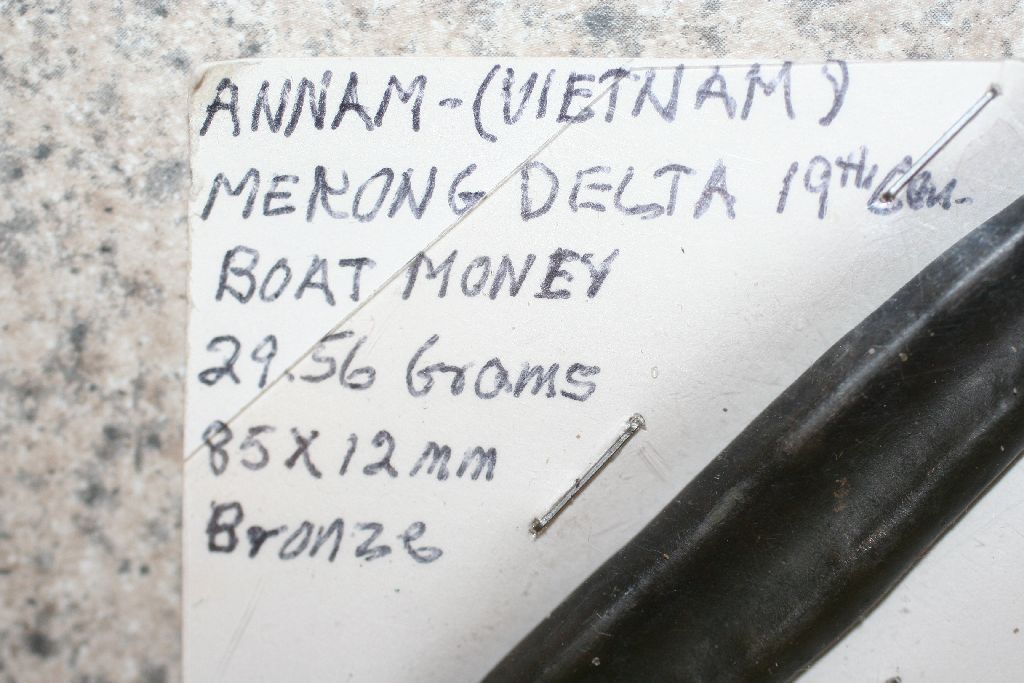 ANNAM-(VIETNAM)
MEKONG DELTA 19th Cen.
BOAT MONEY
29.56 Grams
85 X 12 mm
Bronze